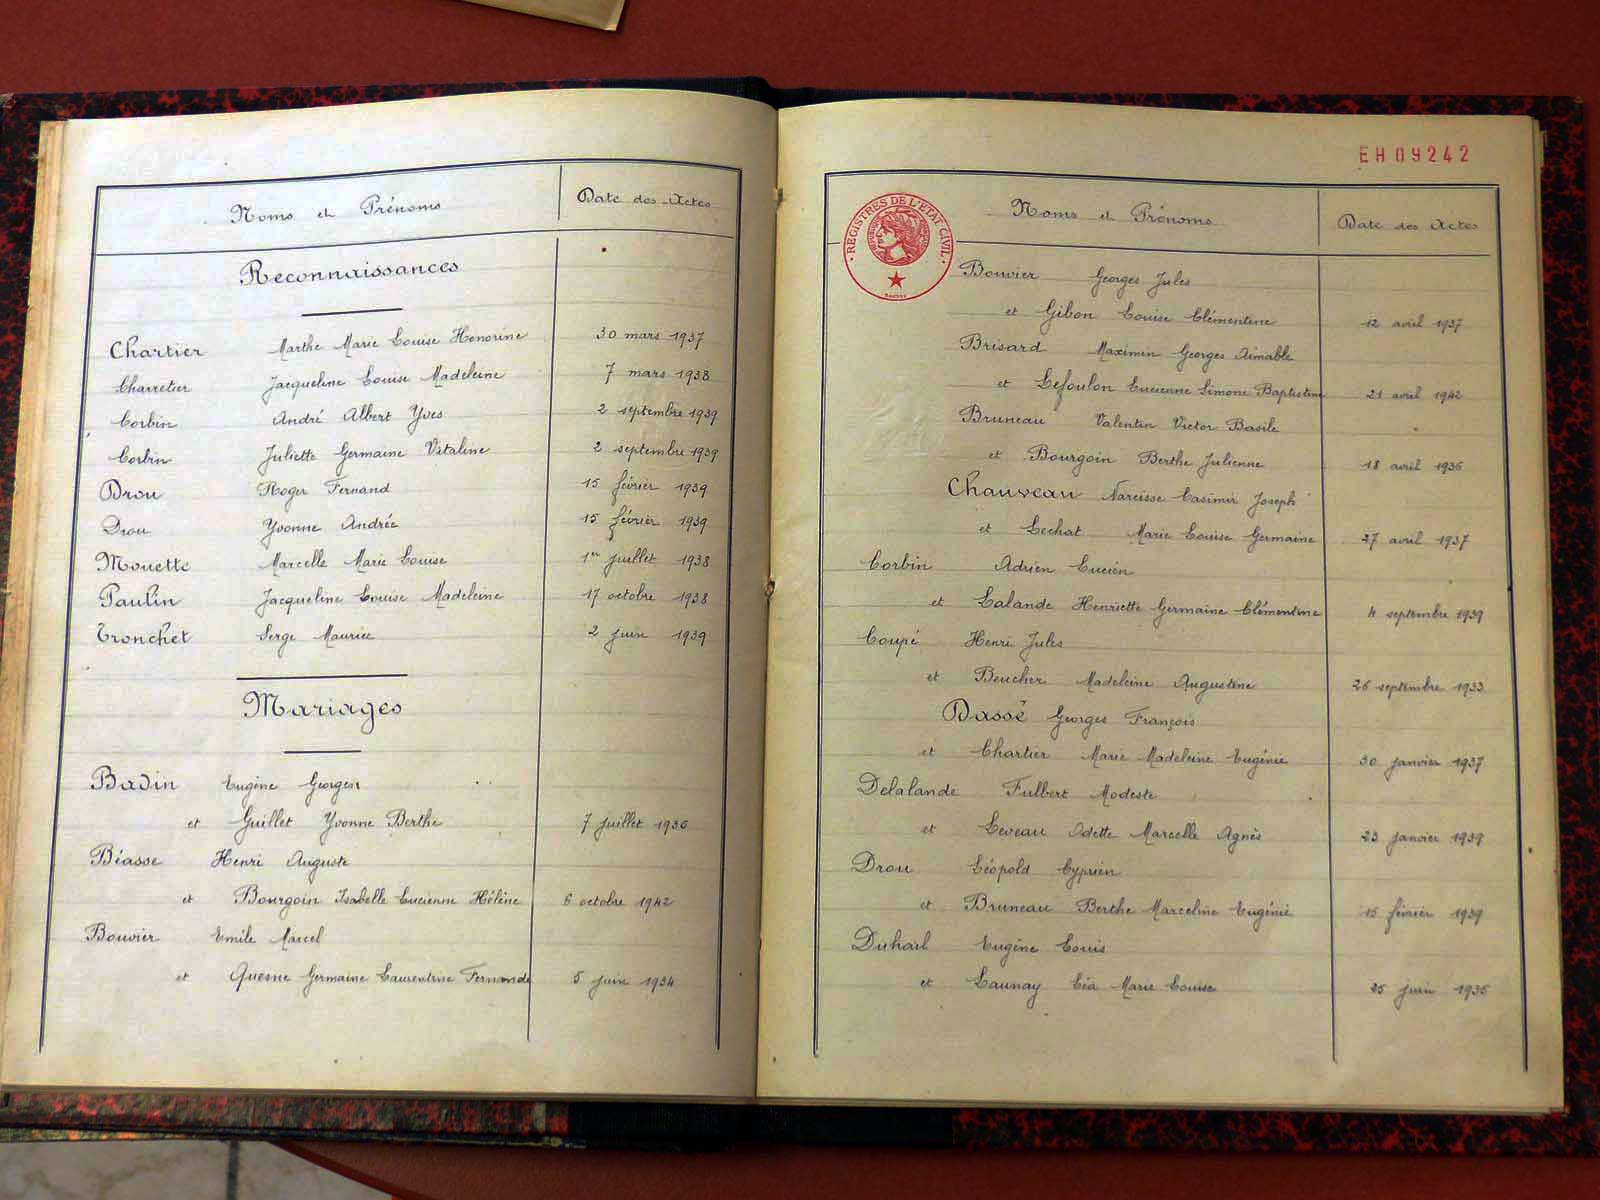 Noms et Prénoms Date des Actes
Reconnaissances
Chartier Marthe Marie Louise Honorine 30 mars 1937
Charretier Jacqueline Louise Madeleine 7 mars 1938
Corbin André Albert Yves 2 septembre 1939
Corbin Juliette Germaine Vitaline 2 septembre 1939
Drou Roger Fernand 15 février 1939
Drou Yvonne Andrée 15 février 1939
Mouette Marcelle Marie Louise 1er juillet 1938
Paulin Jacqueline Louise Madeleine 17 octobre 1938
Tronchet Serge Maurice 2 juin 1939
Mariages
Badin Eugène Georges
et Guillet Yvonne Berthe 7 juillet 1936
Béasse Henri Auguste
et Bourgoin Isabelle Lucienne Hélène 6 octobre 1942
Bouvier Emile Marcel
et Quesne Germaine Laurentine Fernande 5 juin 1934
EH09242
REGISTRES DE L'ETAT CIVIL
Noms et Prénoms Date des Actes
Bouvier Georges Jules
et Gibon Louise Clémentine 12 avril 1937
Brisard Maximin Georges Aimable
et Lefoulon Lucienne Simone Baptistine 21 avril 1942
Bruneau Valentin Victor Basile
et Bourgoin Berthe Julienne 18 avril 1936
Chauveau Narcisse Casimir Joseph
et Lechat Marie Louise Germaine 27 avril 1937
Corbin Adrien Lucien
et Lalande Henriette Germaine Clémentine 4 septembre 1939
Coupé Henri Jules
et Beucher Madeleine Augustine 26 septembre 1933
Dassé Georges François
et Chartier Marie Madeleine Eugénie 30 janvier 1937
Delalande Fulbert Modeste
et Leveau Odette Marcelle Agnès 23 janvier 1939
Drou Léopold Cyprien
et Bruneau Berthe Marceline Eugénie 15 février 1939
Duhail Eugène Louis
et Launay Léa Marie Louise 25 juin 1935